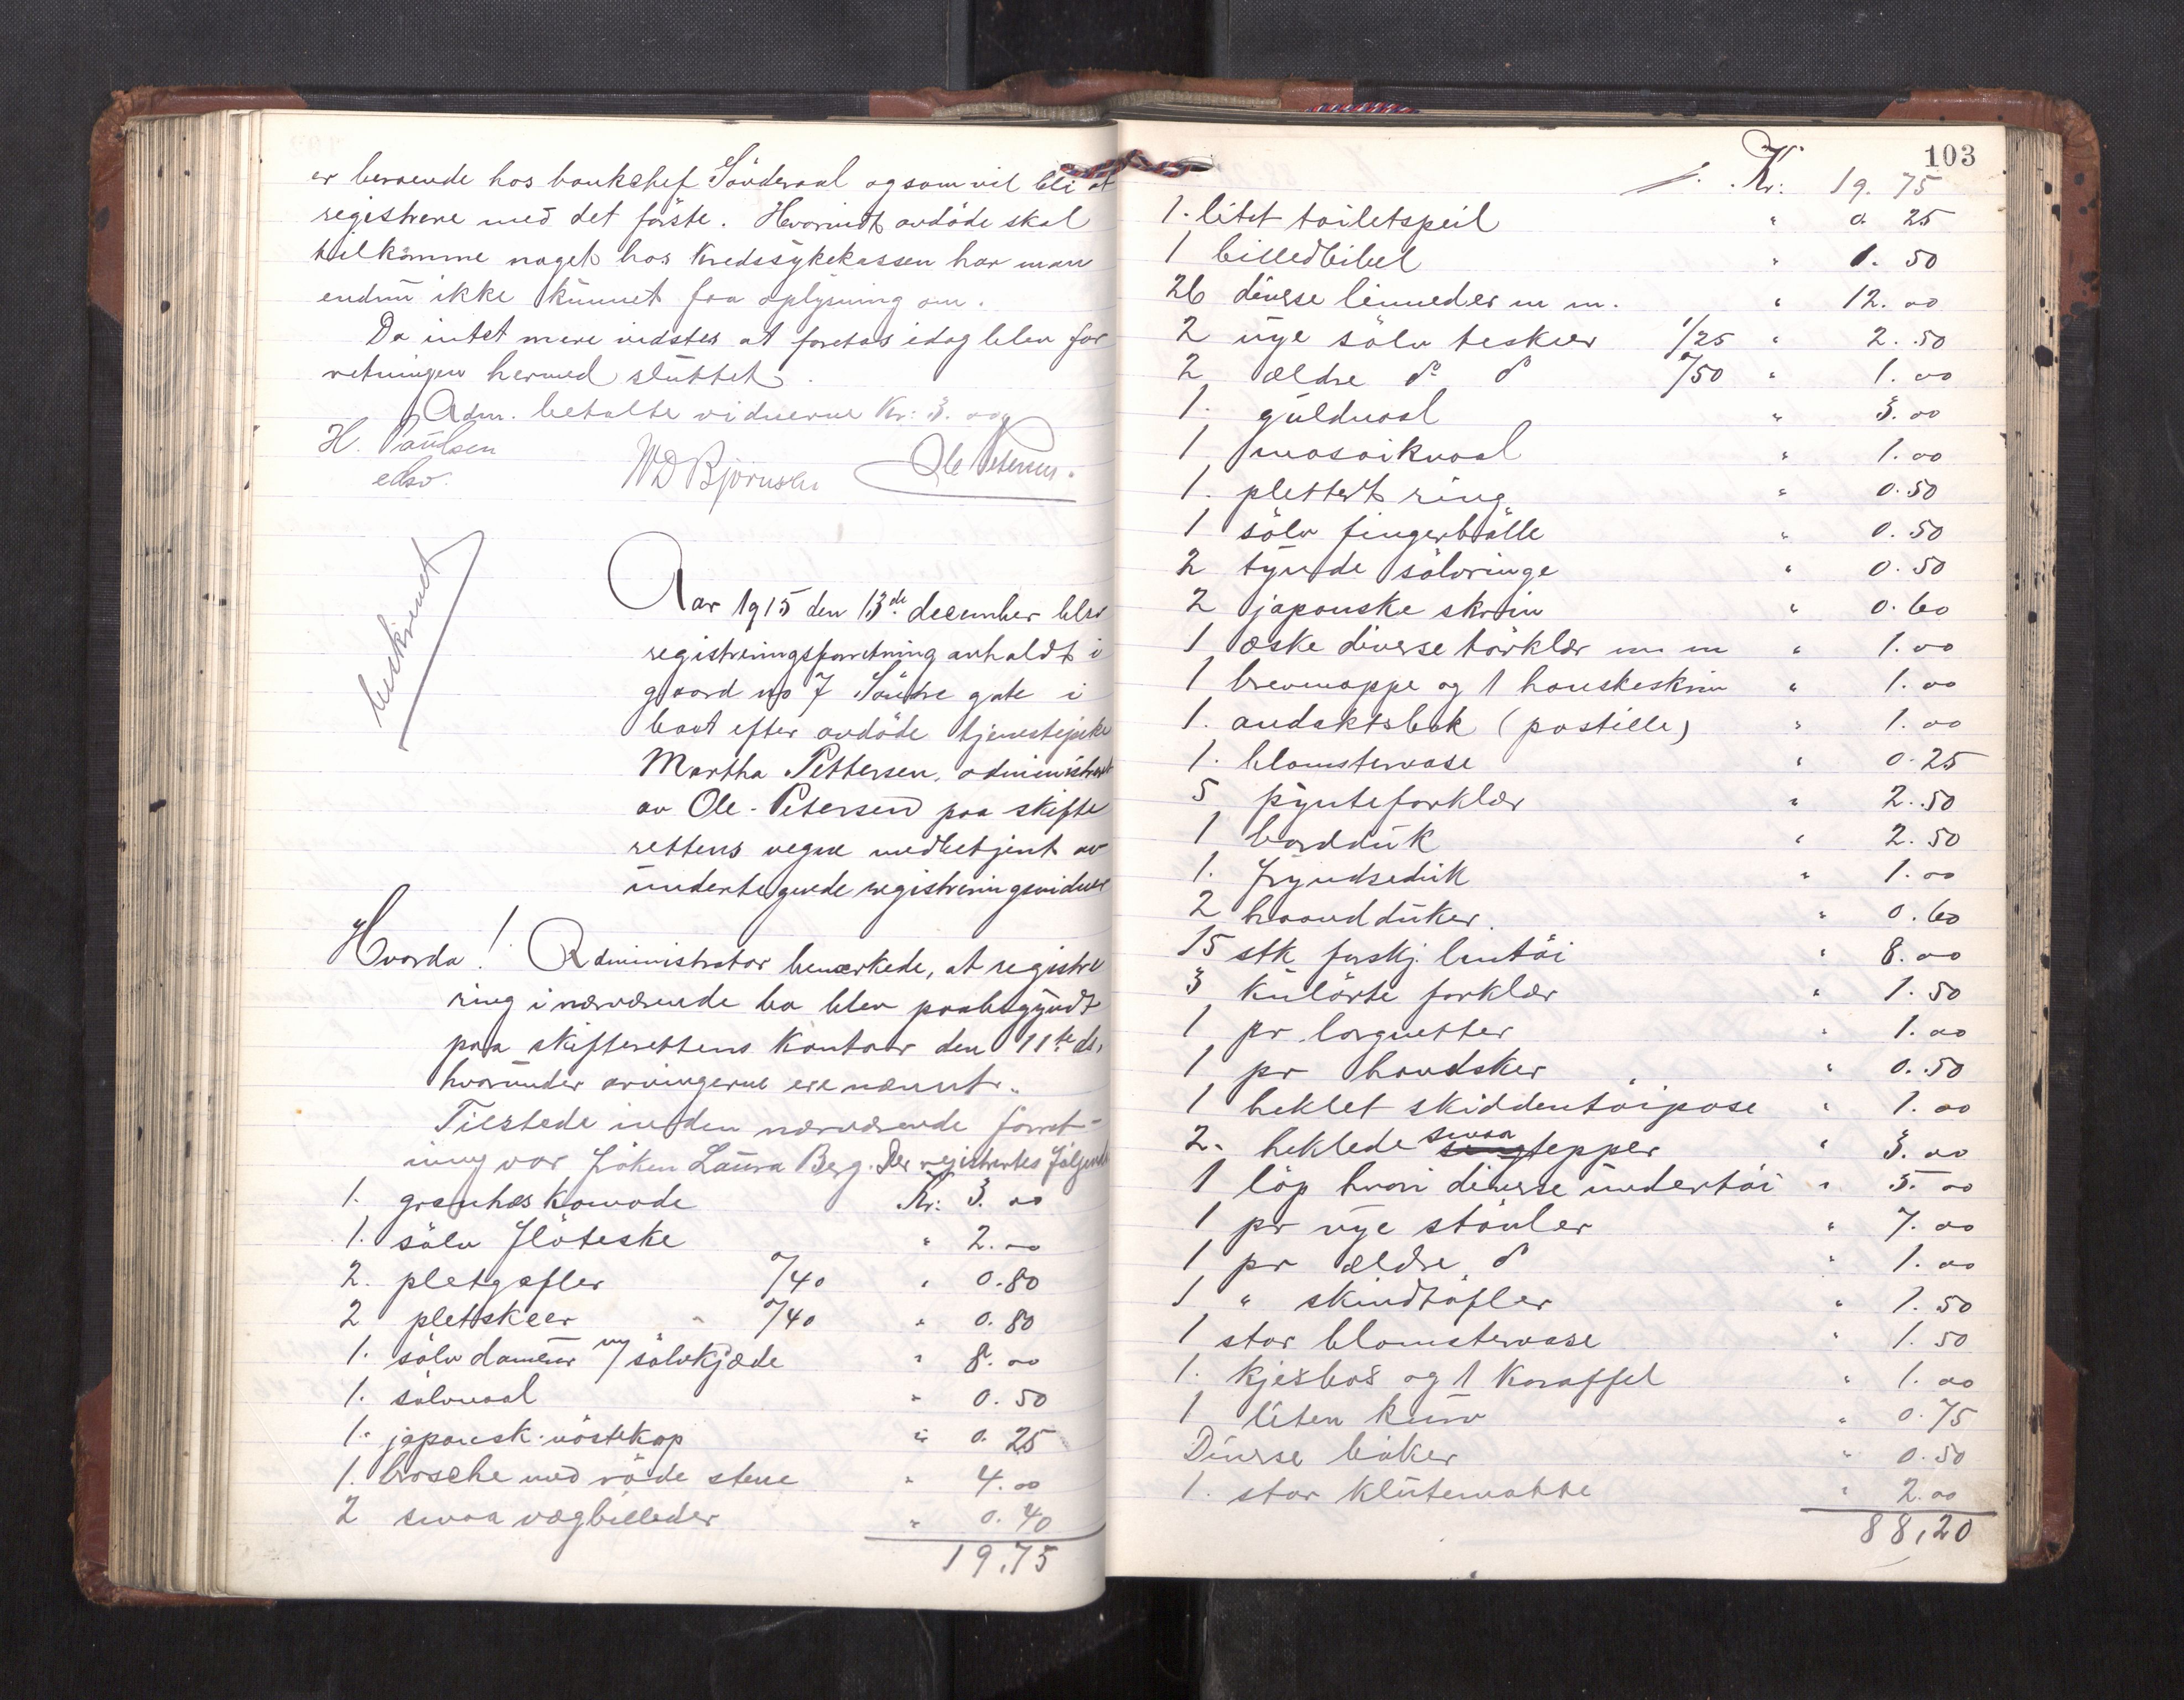 er beroende hos bankchef Sönderaal og som vil bli at
registrere med det förste. Hvorvidt avdöde skal
tilkomme noget hos Kredssykekassen har man
endnu ikke kunnet faa oplysning om.
Da intet mere vidstes at foretas idag blev for
retningen hermed sluttet.
Adm. betalte vidnerne Kr: 3.00
H. Paulsen
edsv.
Ole Petersen.
beskrevet
Aar 1915 den 13de december blev
registreringsforretning avholdt i
gaard no 7 Söndre gate i
boet efter avdöde tjenestepike
Martha Pettersen, administrert
av Ole Petersen paa skifte
rettens vegne medbetjent av
undertegnede registreringsvidner
Hvorda! Administrator bemærkede, at registre
ring i nærværende bo blev paabegyndt
paa skifterettens Kontor den 11te ds.
hvorunder arvingerne ere nævnt.
Tilstede under nærværende forret-
ning var fröken Laura Berg. Der registrertes følgende
1. granhæs komode Kr: 3.00
1. sölv flöteske " 2.00
2. pletgafler 0/40 " 0.80
2 pletskeer " 0/40 " 0.80
1. sölv dameur m/ sölvkjæde " 8.00
1. sölvnaal " 0.50
1. japansk röstekop " 0.25
1. brosche med röde stene " 4.00
2 smaa vægbilleder " 0.40
19,75
103
Kr: 19.75
1. litet toiletspeil " 0.25
1 billedbibel " 1.50
26 diverse linneder m m. " 12.00
2 nye sölv teskeer 1/25 " 2.50
2 ældre do do 0/50 " 1.00
1. guldnaal " 3.00
1 mosaiknaal " 1.00
1. plettert ring " 0.50
1 sölv fingerbölle " 0.50
2 tynde sölvringe " 0.50
2 japanske skrin " 0.60
1 æske diverse törklær m m " 1.00
1 brevmappe og 1 hanskeskrin " 1.00
1. andaktsbok (postille) " 1.00
1. blomstervase " 0.25
5 pynteforklær " 2.50
1 bordduk " 2.50
1. fryndseduk " 1.00
2 haandduker. " 0.60
15 stk forskj. lintöi " 8.00
3 kulörte forklær " 1.50
1 pr lorgnetter " 1.00
1 pr handsker " 0.50
1 heklet skiddentöipose " 1.00
2. heklede smaa tepper " 3.00
1 löp hvori diverse undertöi " 5.00
1 pr nye stövler " 7.00
1 pr ældre do " 1.00
1 " skindtöfler " 1.50
1 stor blomstervase " 1.50
1. kjexbos og 1 Karaffel " 1.00
1 liten kurv " 0.75
Diverse böker " 0.50
1. stor klutematte " 2.00
88,20